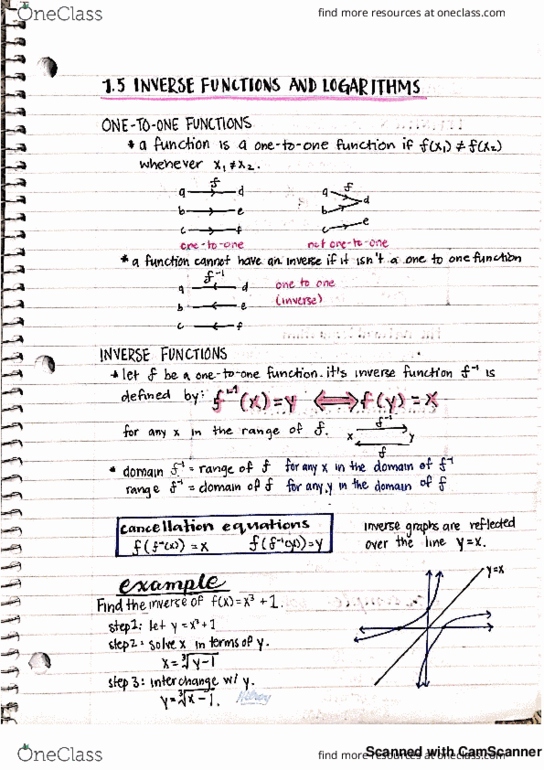 OneClass
find more resources at oneclass.com
1.5 INVERSE FUNCTIONS AND LOGARITHMS
ONE-TO-ONE FUNCTIONS
* a function is a one-to-one function if f(x₁) ≠ f(x₂)
whenever x₁ ≠ x₂.
f f
a d a d
b e b
c f c e
one-to-one not one-to-one
* a function cannot have an inverse if it isn't a one to one function
f⁻¹
a d one to one
b e (inverse)
c f
INVERSE FUNCTIONS
* let f be a one-to-one function. it's inverse function f⁻¹ is
defined by: f⁻¹(x) = y ⟺ f(y) = x
for any x in the range of f.
f⁻¹
x y
f
* domain f⁻¹ = range of f for any x in the domain of f⁻¹
range f⁻¹ = domain of f for any y in the domain of f
cancellation equations
f(f⁻¹(x)) = x f(f⁻¹(y)) = y
inverse graphs are reflected
over the line y=x.
example
Find the inverse of f(x) = x³ + 1.
step 1: let y = x³ + 1
step 2: solve x in terms of y.
x = ∛y-1
step 3: interchange w/ y.
y = ∛x-1.
y=x
OneClass
find more resources at oneclass.com
Scanned with CamScanner